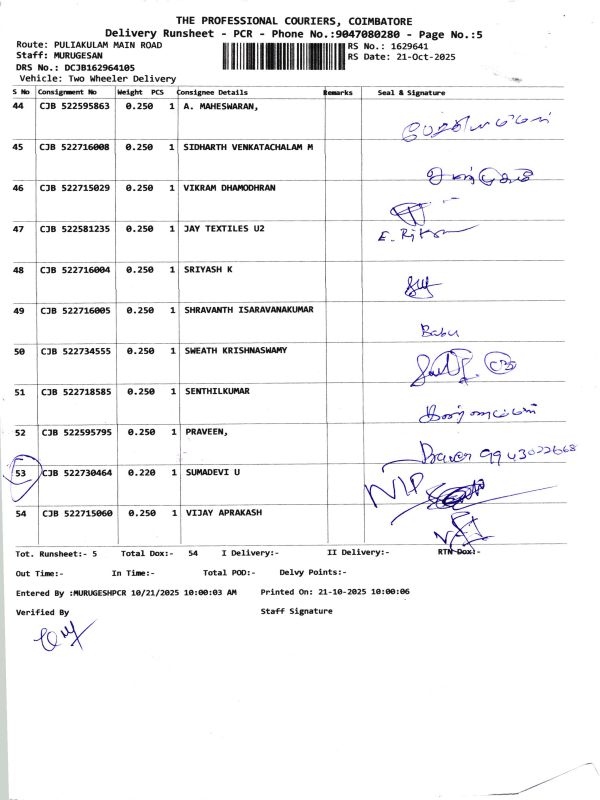 THE PROFESSIONAL COURIERS, COIMBATORE
Delivery Runsheet - PCR - Phone No.:9047080280 - Page No.:5
Route: PULIAKULAM MAIN ROAD RS No.: 1629641
Staff: MURUGESAN RS Date: 21-Oct-2025
DRS No.: DCJB162964105
Vehicle: Two Wheeler Delivery
S No Consignment No Weight PCS Consignee Details Remarks Seal & Signature
44 CJB 522595863 0.250 1 A. MAHESWARAN,
45 CJB 522716008 0.250 1 SIDHARTH VENKATACHALAM M
46 CJB 522715029 0.250 1 VIKRAM DHAMODHRAN
47 CJB 522581235 0.250 1 JAY TEXTILES U2
48 CJB 522716004 0.250 1 SRIYASH K
49 CJB 522716005 0.250 1 SHRAVANTH ISARAVANAKUMAR
Babu
50 CJB 522734555 0.250 1 SWEATH KRISHNASWAMY
51 CJB 522718585 0.250 1 SENTHILKUMAR
52 CJB 522595795 0.250 1 PRAVEEN,
9943022668
53 CJB 522730464 0.220 1 SUMADEVI U
54 CJB 522715060 0.250 1 VIJAY APRAKASH
Tot. Runsheet:- 5 Total Dox:- 54 I Delivery:- II Delivery:- RTN Dox:-
Out Time:- In Time:- Total POD:- Delvy Points:-
Entered By :MURUGESHPCR 10/21/2025 10:00:03 AM Printed On: 21-10-2025 10:00:06
Verified By Staff Signature